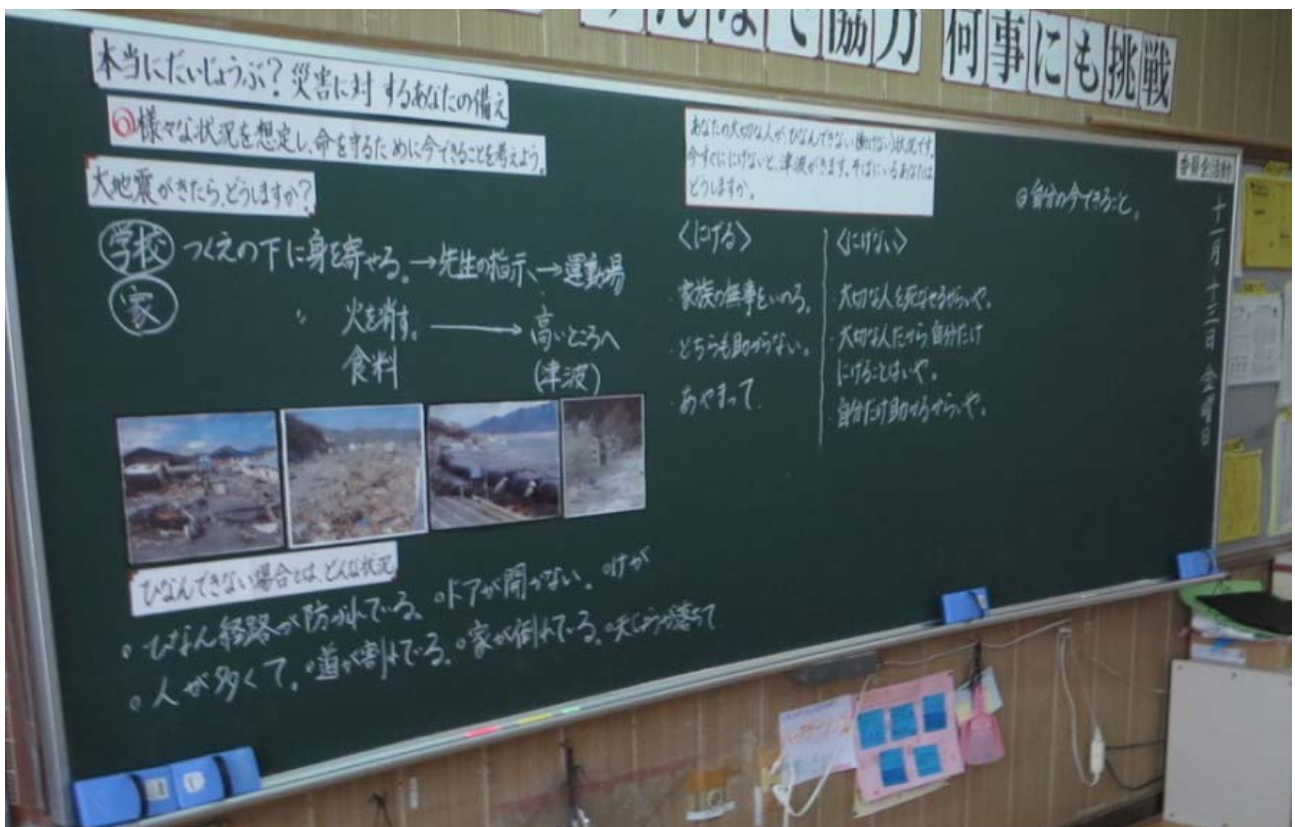 んなで協力 何事にも挑戦
本当にだいじょうぶ？災害に対するあなたの備え
◎様々な状況を想定し、命を守るために今できることを考えよう。
大地震がきたら、どうしますか？
学校 つくえの下に身を寄せる。→先生の指示、→運動場
家 〃 火を消す。→高いところへ
食料 (津波)
ひなんできない場合とは、どんな状況
○ひなん経路が防がれている。○ドアが開かない。○けが
○人が多くて。○道が割れている。○家が倒れている。○天じょうが落ちて
あなたの大切な人がひなんできない(動けない)状況です。
今すぐににげないと、津波がきます。そばにいるあなたは
どうしますか。
〈にげる〉
・家族の無事をいのる。
・どちらも助からない。
・あやまって
〈にげない〉
・大切な人を死なせるからいや。
・大切な人だから自分だけ
にげることはいや。
・自分だけ助かるからいや。
◎自分の今できること。
委員会活動
十一月十三日金曜日